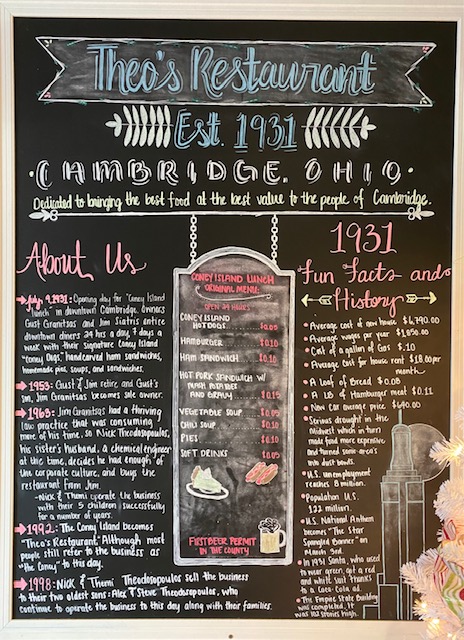 Theo's Restaurant
Est. 1931
CAMBRIDGE, OHIO
Dedicated to bringing the best food at the best value to the people of Cambridge.
About Us
July 9, 1931: Opening day for "Coney Island
Lunch" in downtown Cambridge. Owners
Gust Gramitsas and Jim Siatris entice
downtown diners 24 hrs a day, 7 days a
week with their signature Coney Island
"Coney Dogs," handcarved ham sandwiches,
homemade pies, soups, and sandwiches.
1953: Gust & Jim retire, and Gust's
son, Jim Gramitsas becomes sole owner.
1963: Jim Gramitsas had a thriving
law practice that was consuming
more of his time, so Nick Theodosopoulos,
his sister's husband, a chemical engineer
at the time, decides he had enough of
the corporate culture, and buys the
restaurant from Jim.
-Nick & Themi operate the business
with their 5 children successfully
for a number of years.
1992: The Coney Island becomes
"Theo's Restaurant." Although most
people still refer to the business as
"The Coney" to this day.
1998: Nick & Themi Theodosopoulos sell the business
to their two oldest sons: Alex & Steve Theodosopoulos, who
continue to operate the business to this day along with their families.
CONEY ISLAND LUNCH
ORIGINAL MENU:
OPEN 24 HOURS
CONEY ISLAND
HOTDOGS $0.05
HAMBURGER $0.10
HAM SANDWICH $0.10
HOT PORK SANDWICH W/
MASH POTATOES
AND GRAVY $0.15
VEGETABLE SOUP $0.05
CHILI SOUP $0.10
PIES $0.10
SOFT DRINKS $0.05
FIRST BEER PERMIT
IN THE COUNTY
1931
Fun Facts and
History
Average cost of new house $6,790.00
Average wages per year $1,850.00
Cost of a gallon of Gas $.10
Average cost for house rent $18.00 per
month
A Loaf of Bread $0.08
A LB of Hamburger meat $0.11
New car average price $640.00
Serious drought in the
Midwest which in turn
made food more expensive
and turned some area's
into dust bowls.
U.S. unemployment
reaches 8 million.
Population U.S.
122 million.
U.S. National Anthem
becomes "The Star
Spangled Banner" on
March 3rd.
In 1931 Santa, who used
to wear green, got a red
and white suit thanks
to a Coca-Cola ad.
The Empire State Building
was completed. It
was 102 stories high.